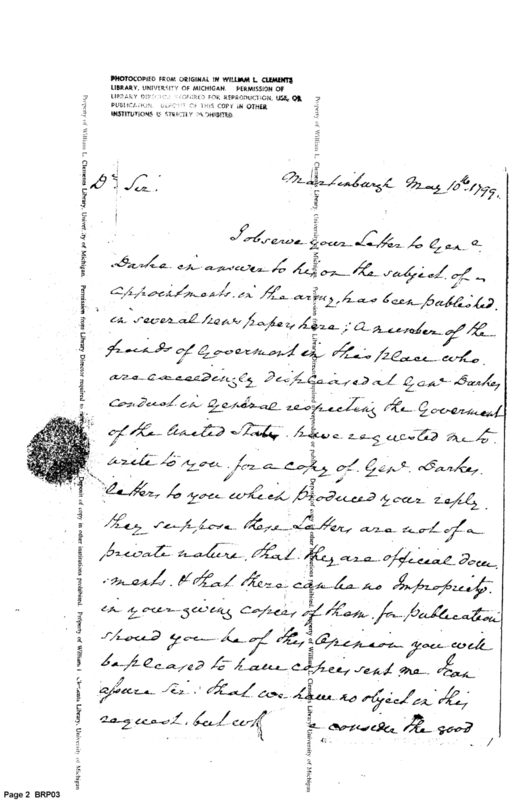 PHOTOCOPIED FROM ORIGINAL IN WILLIAM L. CLEMENTS
LIBRARY, UNIVERSITY OF MICHIGAN. PERMISSION OF
LIBRARY DIRECTOR REQUIRED FOR REPRODUCTION, USE, OR
PUBLICATION. DEPOSIT OF THIS COPY IN OTHER
INSTITUTIONS IS STRICTLY PROHIBITED.
Martinburgh May 10th. 1799.
Dr. Sir.
I observe your Letter to Genl.
Darke in answer to his on the subject of
appointments in the army, has been published
in several news papers here; A number of the
friends of Goverment in this place who
are exceedingly displeased at Genl. Darkes
conduct in general respecting the Goverment
of the United States have requested me to
write to you for a copy of Genl. Darkes
letters to you which produced your reply.
they suppose these Letters are not of a
private nature, that they are official docu
:ments. & that there can be no Impropriety
in your giving copies of them for publication
should you be of this Opinion you will
be pleased to have copies sent me I can
assure Sir: that we have no object in this
request, but wh e consider the good
Property of William L. Clements Library, University of Michigan. Permission from Library Director required to Deposit of copy in other institutions prohibited. Property of William L. Clements Library, University of Michigan
Property of William L. Clements Library, University of Michigan. Permission from Library Director required for reproduction or publication. Deposit of copy in other institutions prohibited. Property of William L. Clements Library, University of Michigan
Page 2 BRP03